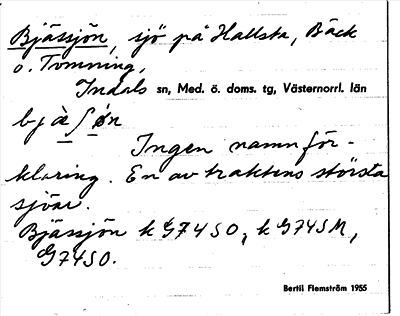 Bjässjön, sjö på Hallsta, Bäck
o. Tomning,
Indals sn, Med. ö. doms. tg, Västernorrl. län
bjä̀ʃøn
Ingen namnför-
klaring. En av traktens största
sjöar.
Bjässjön k G74SO, k G74SM,
G74SO.
Bertil Flemström 1955